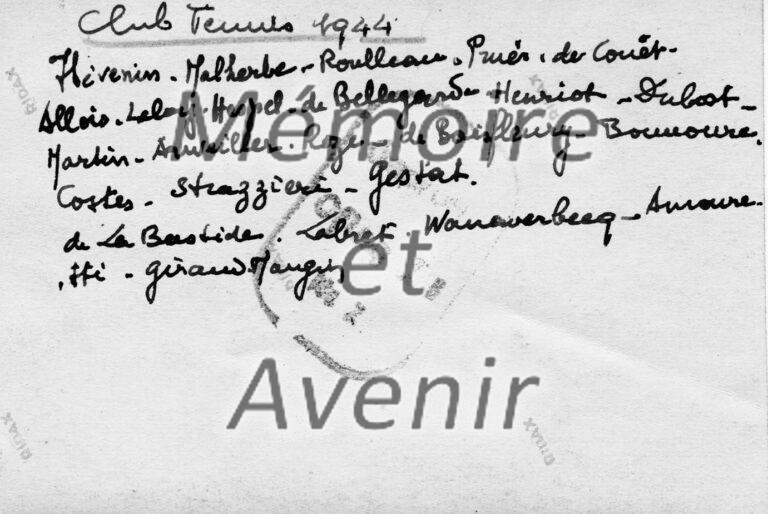 Club Tennis 1944
Thévenin - Malherbe - Roulleau - Priés - de Couët -
Allois - Hespel - de Bellegarde Henriot - Dubost -
Martin - - Roze - de Boisfleury - Bonnoure.
Costes - Strazzieri - Gestat.
de La Bastide. Labret. Wanewerbecq - Amoure.
Giraud Maugin
Mémoire
et
Avenir
RIDAX
RIDAX
RIDAX
RIDAX